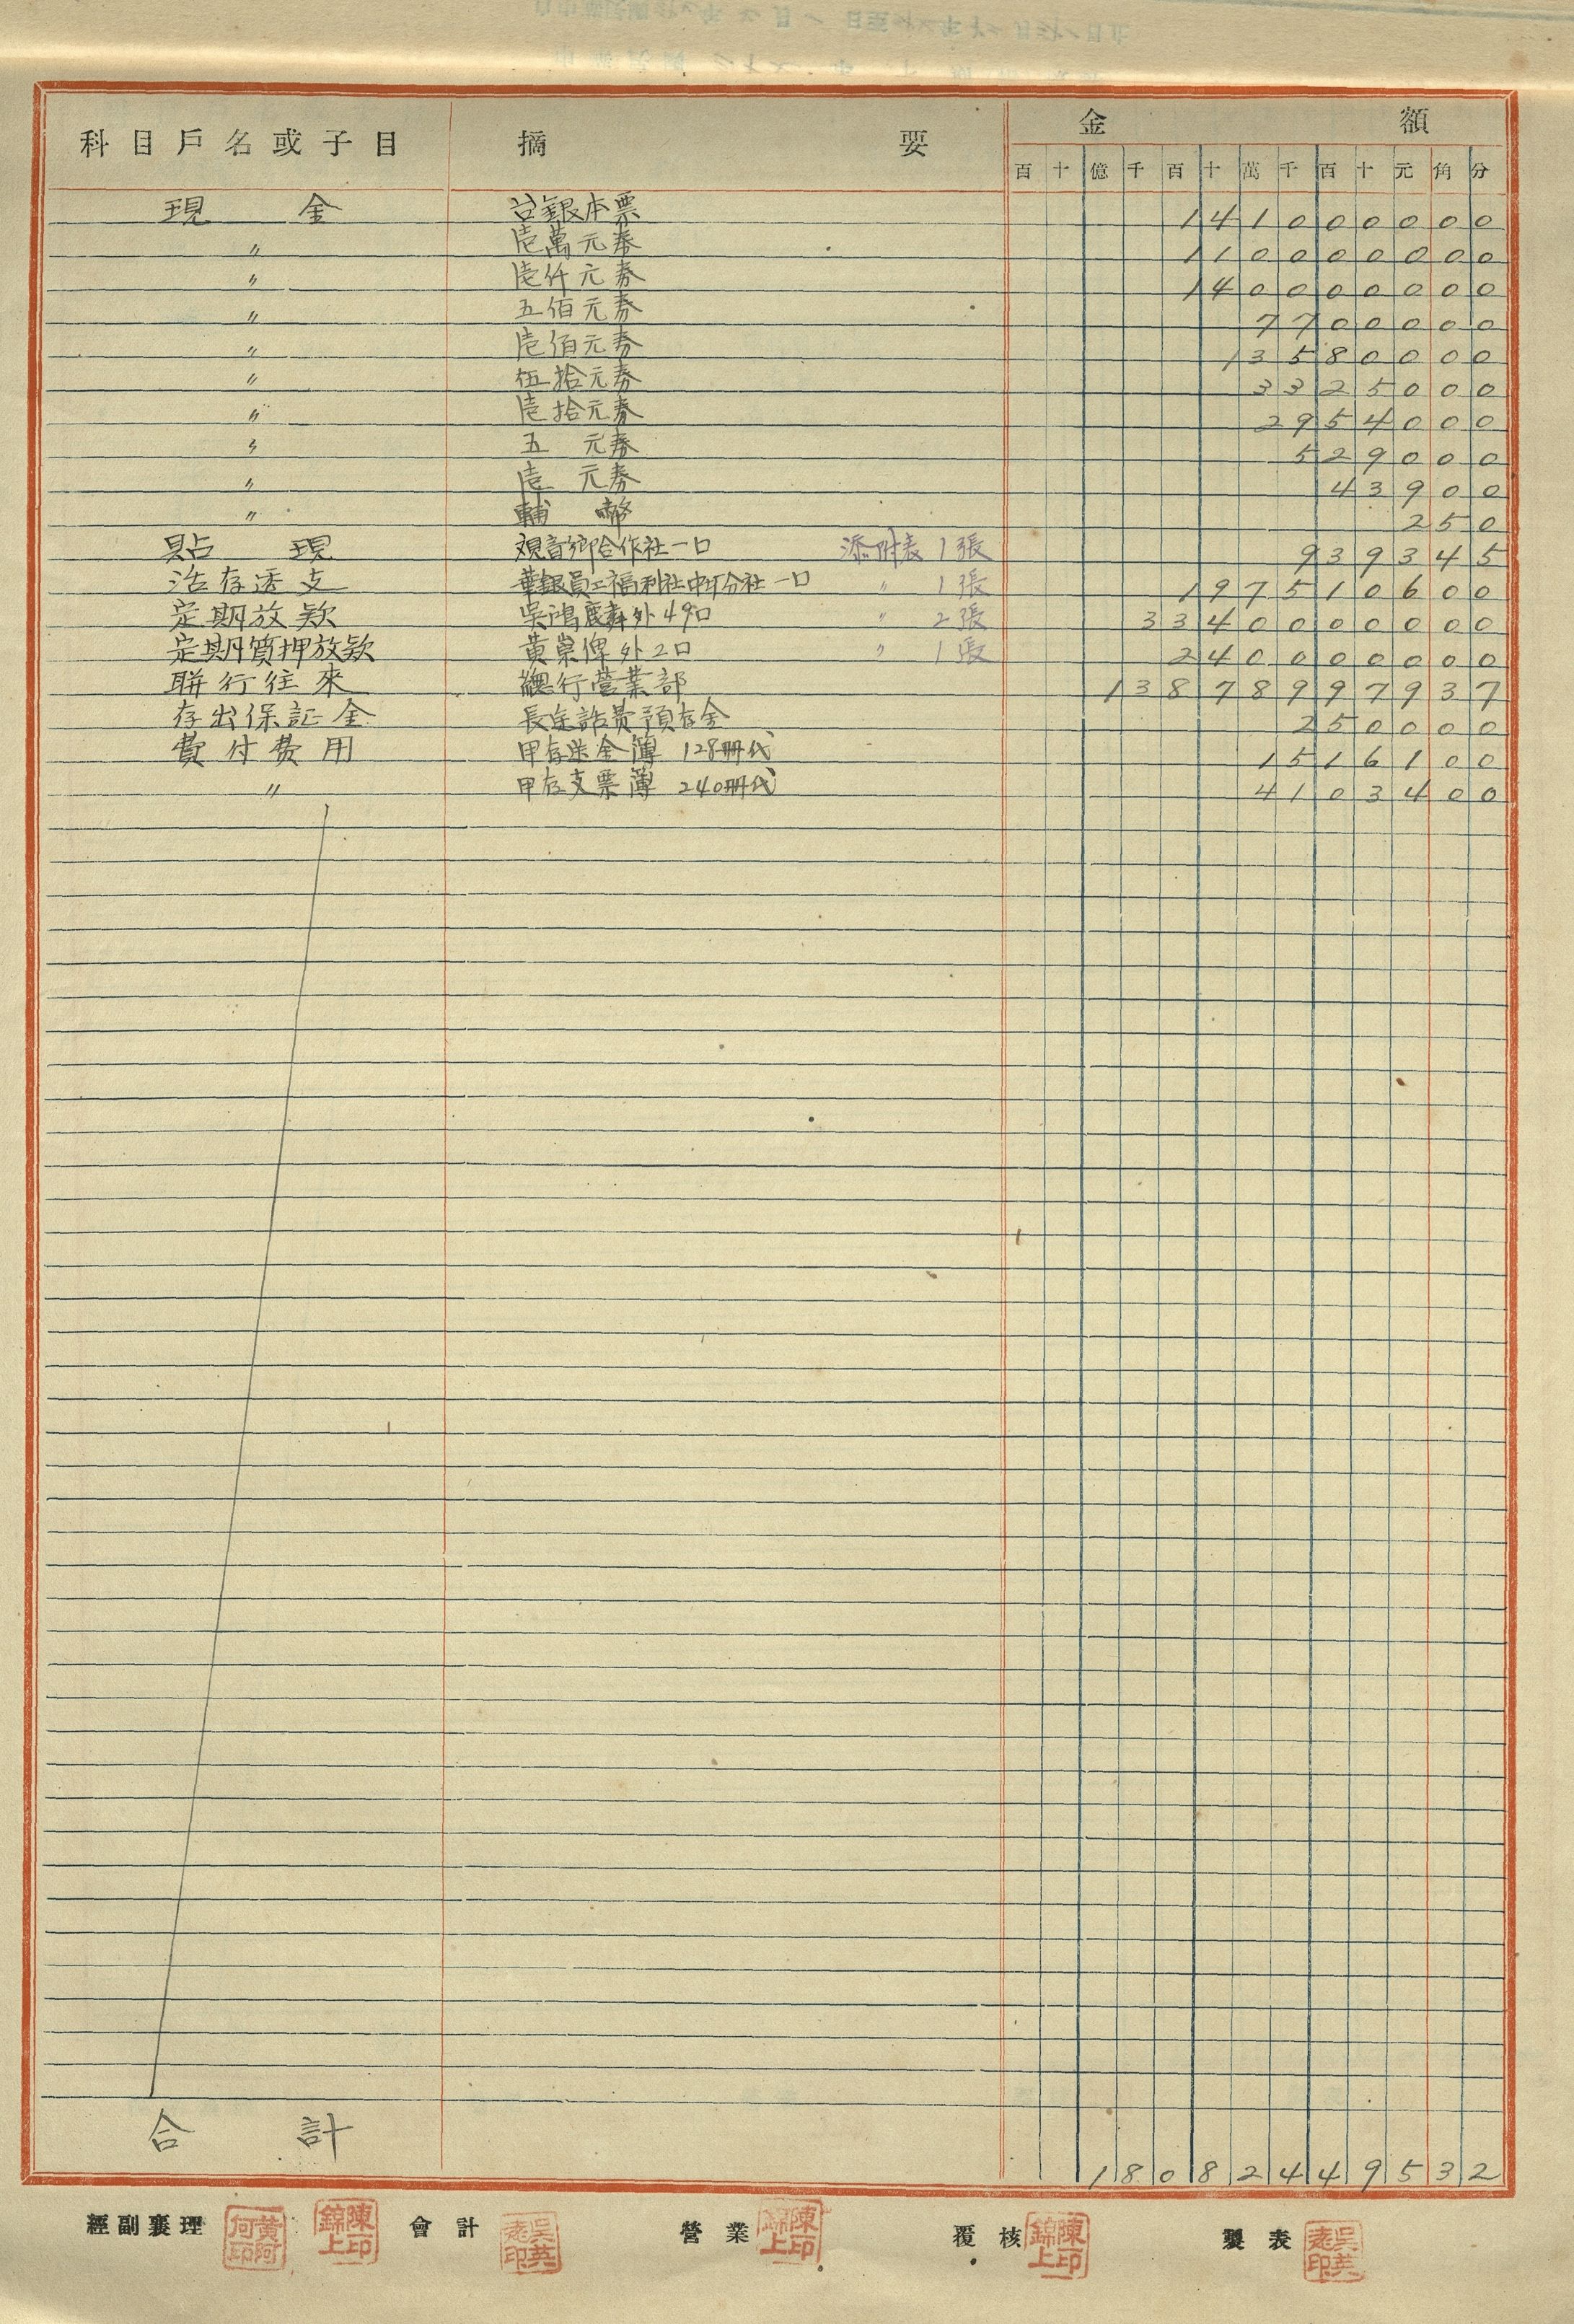 科目戶名或子目 摘要 金額
百 十 億 千 百 十 萬 千 百 十 元 角 分
現金 台銀本票 141000000
〃 壹萬元券 110000000
〃 壹仟元券 140000000
〃 五佰元券 7700000
〃 壹佰元券 13580000
〃 伍拾元券 3325000
〃 壹拾元券 2954000
〃 五元券 529000
〃 壹元券 43900
〃 輔幣 250
貼現 观音鄉合作社一口 添附表 1張 939345
活存透支 華銀員工福利社中坜分社一口 〃 1張 197510600
定期放款 吳鴻麟外49口 〃 2張 3340000000
定期質押放款 黃崇俾外2口 〃 1張 240000000
聯行往來 總行營業部 13878997937
存出保証金 長途話費預存金 250000
費付費用 甲存送金簿 128冊代 1516100
〃 甲存支票簿 240冊代 4103400
合計 18082449532
經副襄理 黃阿何印 陳錦上印 會計 營業 陳錦上印 覆核 陳錦上印 製表